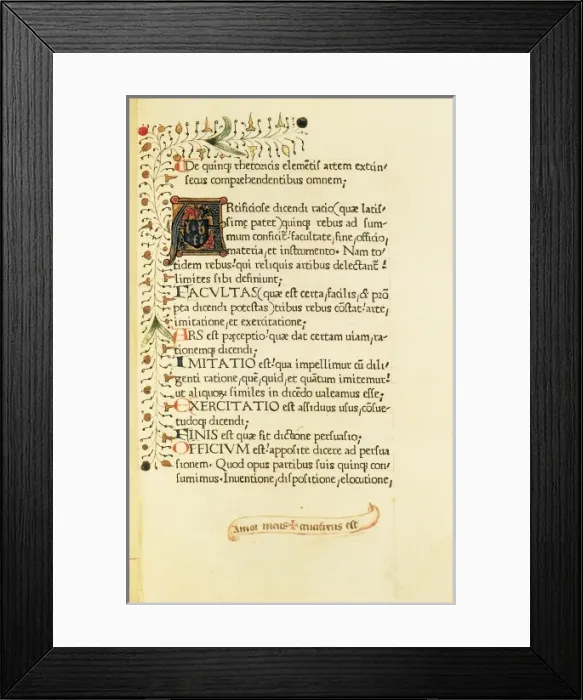 De quinqꝫ rhetoricis elemētis artem extin-
secus comprehendentibus omnem;
ARtificiose dicendi ratio (quæ latis-
sime patet) quinqꝫ rebus ad sum-
mum conficit̄: facultate, fine, officio,
materia, et instrumento. Nam to-
tidem rebus: qui reliquis artibus delectant̄:
limites sibi definiunt;
FACVLTAS (quæ est certa, facilis, & prō
pta dicendi potestas) tribus rebus cōstat: arte,
imitatione, et exercitatione;
ARS est præceptio: quæ dat certam uiam, ra-
tionemqꝫ dicendi;
IMITATIO est: qua impellimur cū dili-
genti ratione, quē, quid, et quātum imitemur:
ut aliquorꝝ similes in dicēdo ualeamus esse;
EXERCITATIO est assiduus usus, cōsue-
tudoqꝫ dicendi;
FINIS est quæ fit dictione persuasio;
OFFICIVM est: apposite dicere ad persua
sionem. Quod opus partibus suis quinqꝫ con-
sumimus. Inuentione, dispositione, elocutione,
Amor meus crucifixus est